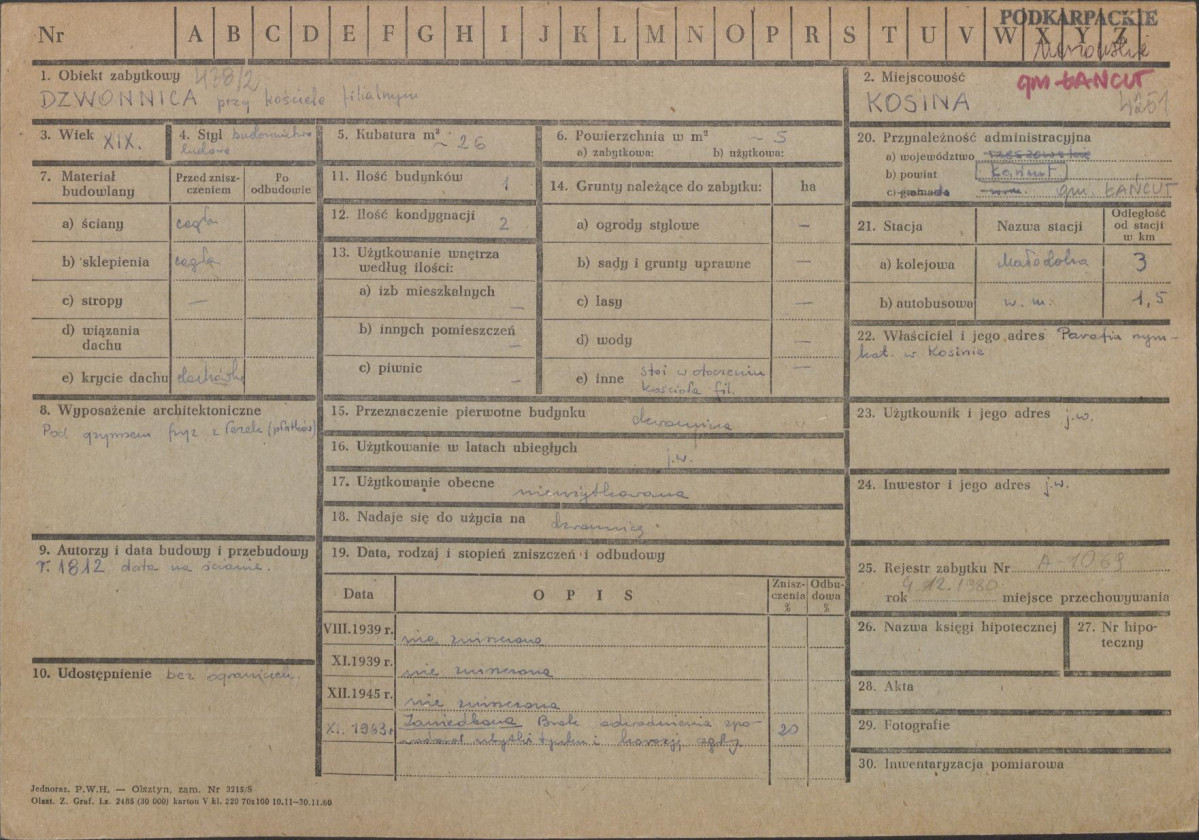 Nr A B C D E F G H I J K L M N O P R S T U V W X Y Z
PODKARPACKIE
1. Obiekt zabytkowy 438/2
DZWONNICA przy kościele filialnym
2. Miejscowość
gm ŁAŃCUT
KOSINA 4251
3. Wiek XIX.
4. Styl budownictwo
ludowe
5. Kubatura m³ ~ 26
6. Powierzchnia w m² ~ 5
a) zabytkowa: b) użytkowa:
7. Materiał budowlany
Przed zniszczeniem
Po odbudowie
a) ściany cegła
b) sklepienia cegła
c) stropy —
d) wiązania dachu
e) krycie dachu dachówka
8. Wyposażenie architektoniczne
Pod gzymsem fryz z
9. Autorzy i data budowy i przebudowy
r. 1812 data na ścianie.
10. Udostępnienie bez ograniczeń.
11. Ilość budynków 1
12. Ilość kondygnacji 2
13. Użytkowanie wnętrza według ilości:
a) izb mieszkalnych —
b) innych pomieszczeń —
c) piwnic —
14. Grunty należące do zabytku: ha
a) ogrody stylowe —
b) sady i grunty uprawne —
c) lasy —
d) wody —
e) inne stoi w otoczeniu —
kościoła fil.
15. Przeznaczenie pierwotne budynku dzwonnica
16. Użytkowanie w latach ubiegłych j.w.
17. Użytkowanie obecne nieużytkowana
18. Nadaje się do użycia na dzwonnicę.
19. Data, rodzaj i stopień zniszczeń i odbudowy
Data OPIS Zniszczenia % Odbudowa %
VIII.1939 r. nie zniszczona
XI.1939 r. nie zniszczona
XII.1945 r. nie zniszczona
XI. 1963 r Zaniedbana Brak odwodnienia spo-
wodował ubytki tynku i korozję cegły 20
20. Przynależność administracyjna
a) województwo rzeszowskie
b) powiat Łańcut
c) gromada gm. ŁAŃCUT
21. Stacja Nazwa stacji Odległość od stacji w km
a) kolejowa 3
b) autobusowa w. m. 1,5
22. Właściciel i jego adres Parafia rzym-
kat. w Kosinie
23. Użytkownik i jego adres j.w.
24. Inwestor i jego adres j.w.
25. Rejestr zabytku Nr A-1069
rok 9.12.1980 miejsce przechowywania
26. Nazwa księgi hipotecznej
27. Nr hipoteczny
28. Akta
29. Fotografie
30. Inwentaryzacja pomiarowa
Jednoraz. P.W.H. — Olsztyn, zam. Nr 3215/S
Olszt. Z. Graf. Lz. 2485 (30 000) karton V kl. 220 70x100 10.11—30.11.60